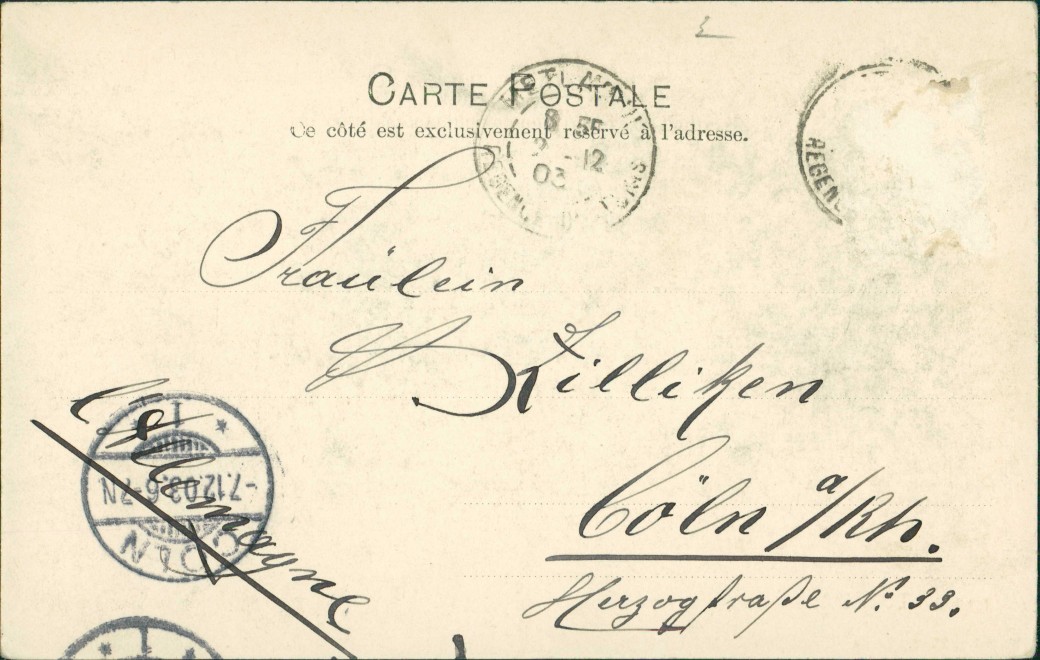 CARTE POSTALE
Ce côté est exclusivement réservé à l'adresse.
8 55
12
03
RÉGENCE
Fräulein
Zilliken
Cöln a/Rh.
Herzogstraße No. 33.
l'Allemagne
CÖLN
-7.12.03.6-7N
1
1